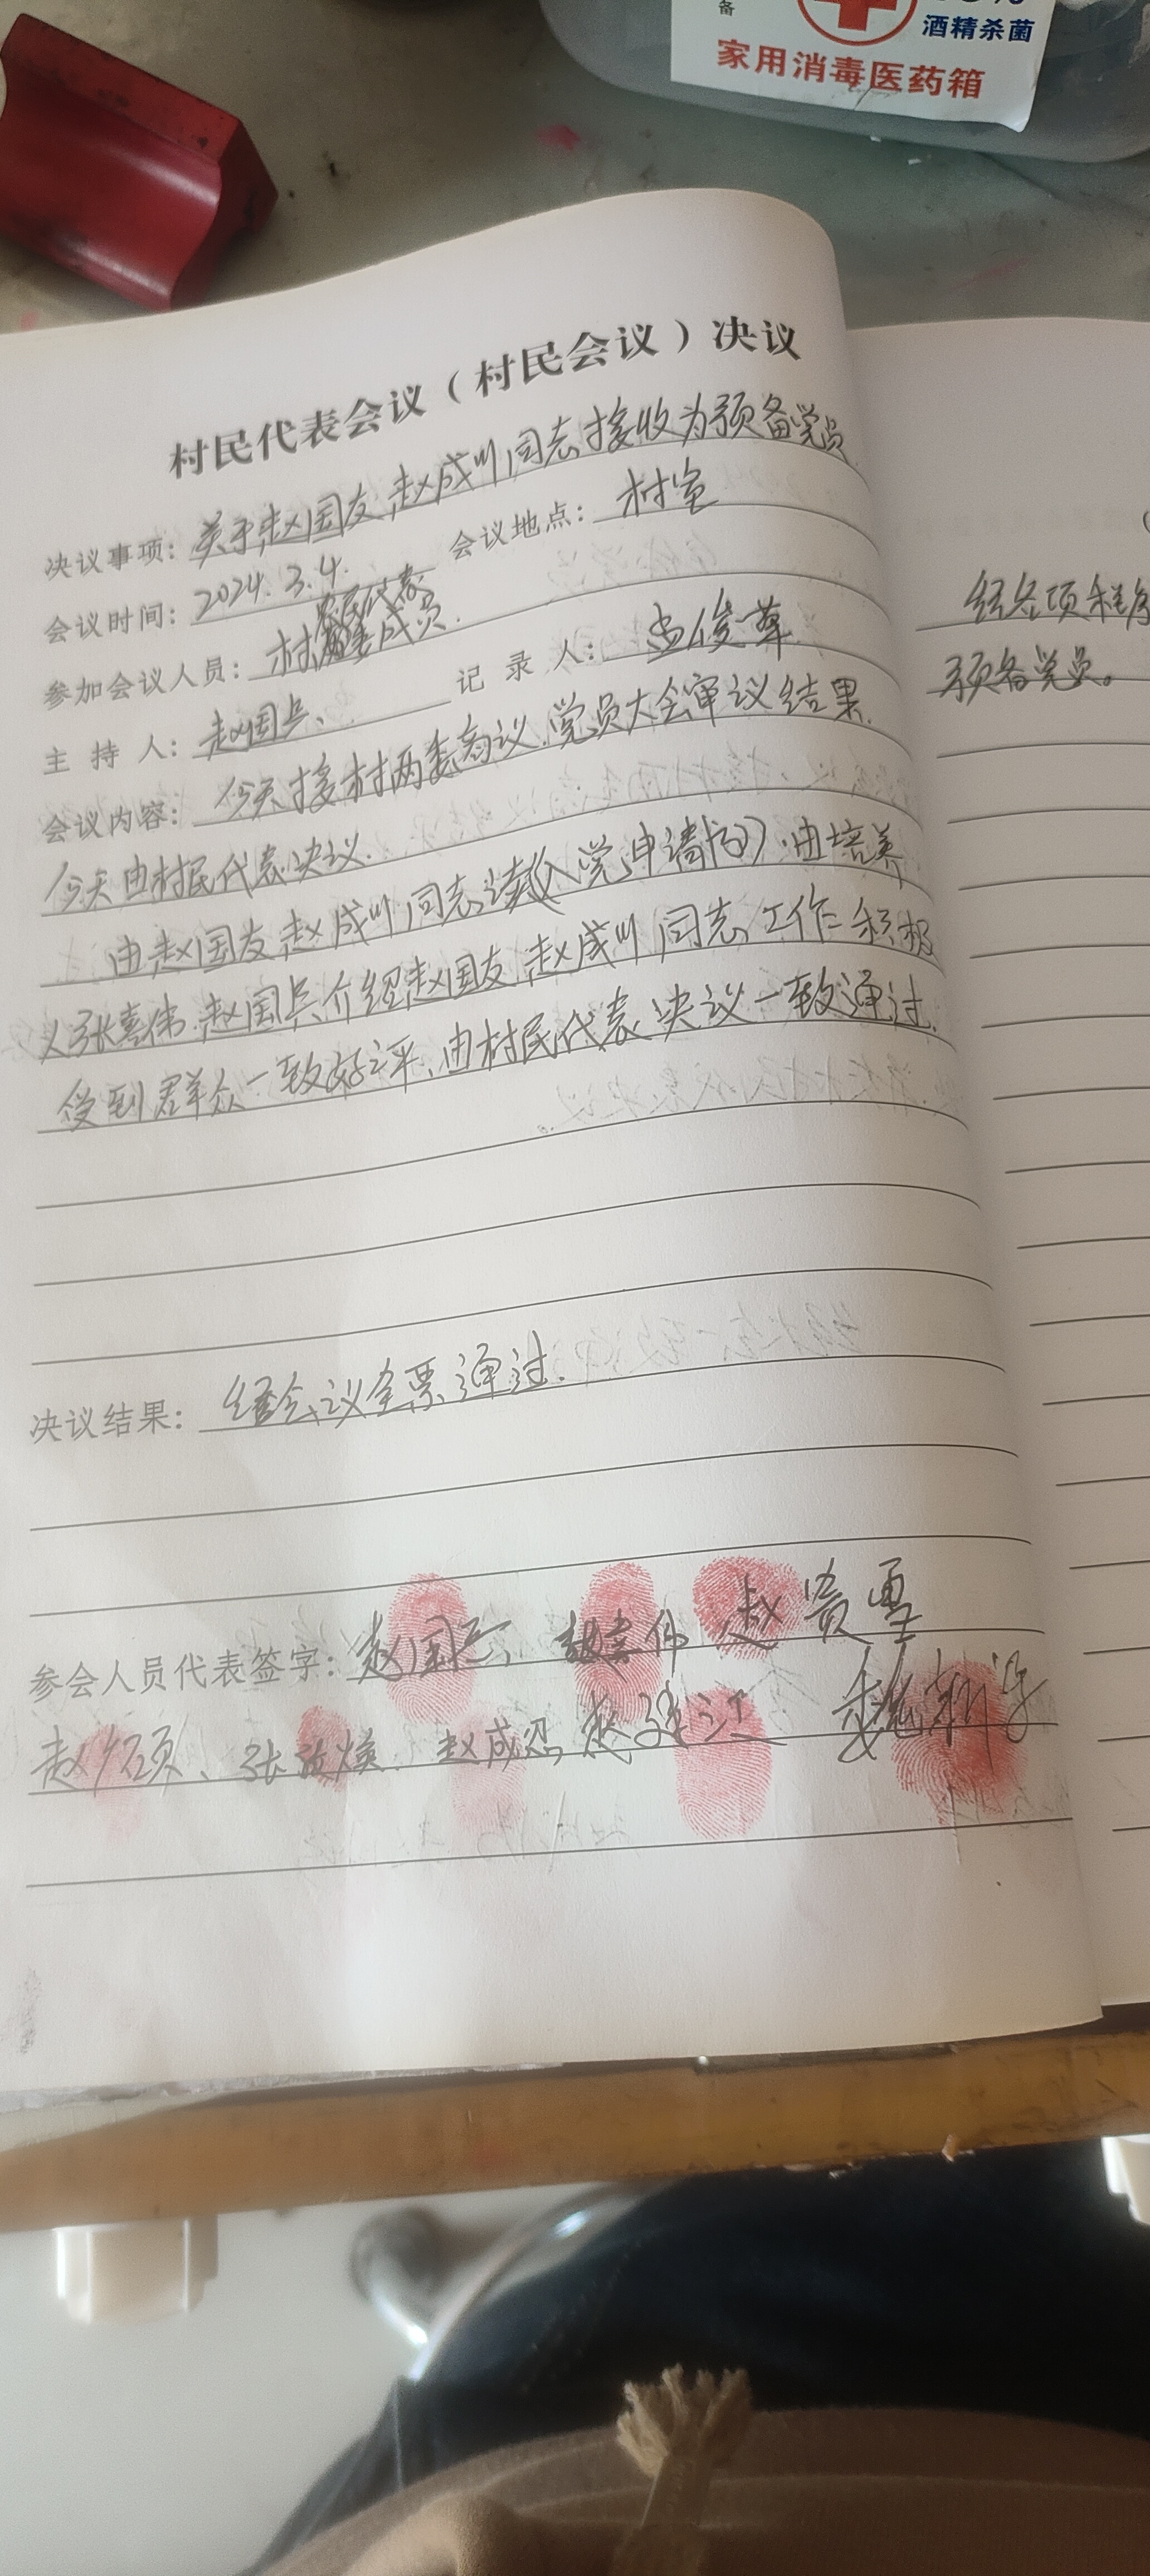 备
酒精杀菌
家用消毒医药箱
村民代表会议（村民会议）决议
决议事项：关于赵国友、赵成川同志接收为预备党员
会议时间：2024.3.4. 会议地点：村室
参加会议人员：村 成员.
主 持 人：赵国兵、 记 录 人：
会议内容：今天接村两委商议.党员大会审议结果.
今天由村民代表决议.
由赵国友赵成川同志读《入党申请书》.由培养
人张喜伟.赵国兵介绍赵国友.赵成川同志工作积极
受到群众一致好评、由村民代表决议一致通过.
决议结果：经会议全票通过.
参会人员代表签字：赵国兵 张喜伟 赵贵
赵 、张 . 赵成忍
经各项程序
预备党员。